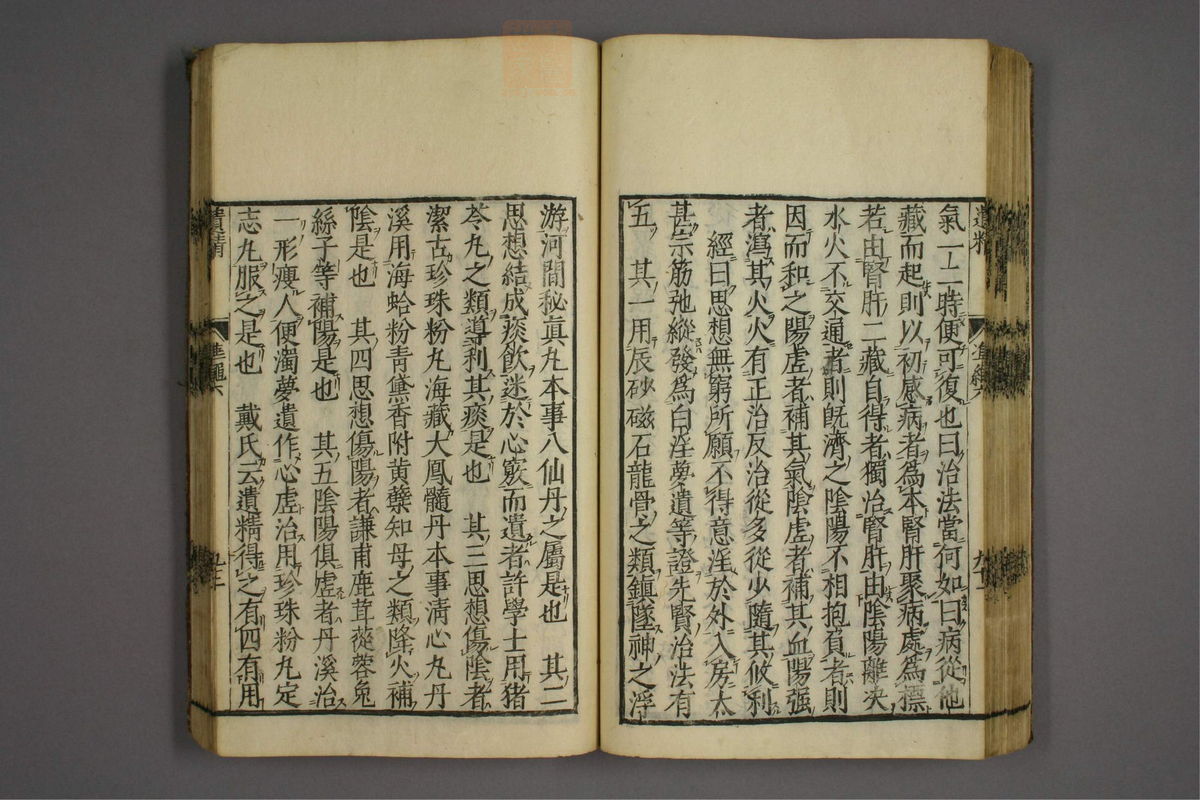 氣一二時便可復也曰治法當何如曰病從他
藏而起則以初感病者爲本腎肝聚病處爲標
若由腎肝二藏自得者獨治腎肝由陰陽離决
水火不交通者則旣濟之陰陽不相抱負者則
因而和之陽虛者補其氣陰虛者補其血陽强
者瀉其火火有正治反治從多從少隨其攸利
經曰思想無窮所願不得意淫於外入房太
甚宗筋弛縱發爲白淫夢遺等證先賢治法有
五 其一用辰砂磁石龍骨之類鎮墜神之浮
游河間秘眞丸本事八仙丹之屬是也 其二
思想結成痰飲迷於心竅而遺者許學士用猪
苓丸之類導利其痰是也 其三思想傷陰者
潔古珍珠粉丸海藏大鳳髓丹本事清心丸丹
溪用海蛤粉青黛香附黄蘗知母之類降火補
陰是也 其四思想傷陽者謙甫鹿茸蓯蓉兔
絲子等補陽是也 其五陰陽俱虛者丹溪治
一形瘦人便濁夢遺作心虛治用珍珠粉丸定
志丸服之是也 戴氏云遺精得之有四有用
遺精 準繩六 九三